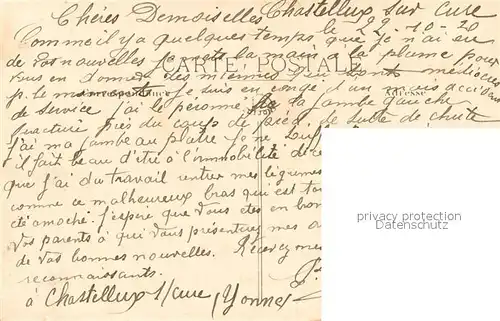 Chères Demoiselles Chastellux sur Cure
le 22-10-20
Comme il y a quelques temps que je n'ai eu
de vos nouvelles je mets la main à la plume pour
CARTE POSTALE
vous en donner des miennes qui sont médiocres
Correspondance
Adresse
p. le moment je suis en congé d'un accident
de service j'ai le péroné de la jambe gauche
fracturé près du coup de pied, de suite de chute
j'ai ma jambe au plâtre je ne
il fait beau d'être à l'immobilité
que j'ai du travail rentrer mes légumes
comme ce malheureux bras qui est
été amoché. J'espère que vous êtes en bon
Vos parents à qui vous présenterez mes
de vos bonnes nouvelles. Recevez mes
reconnaissants.
à Chastellux s/cure (Yonne)
privacy protection
Datenschutz